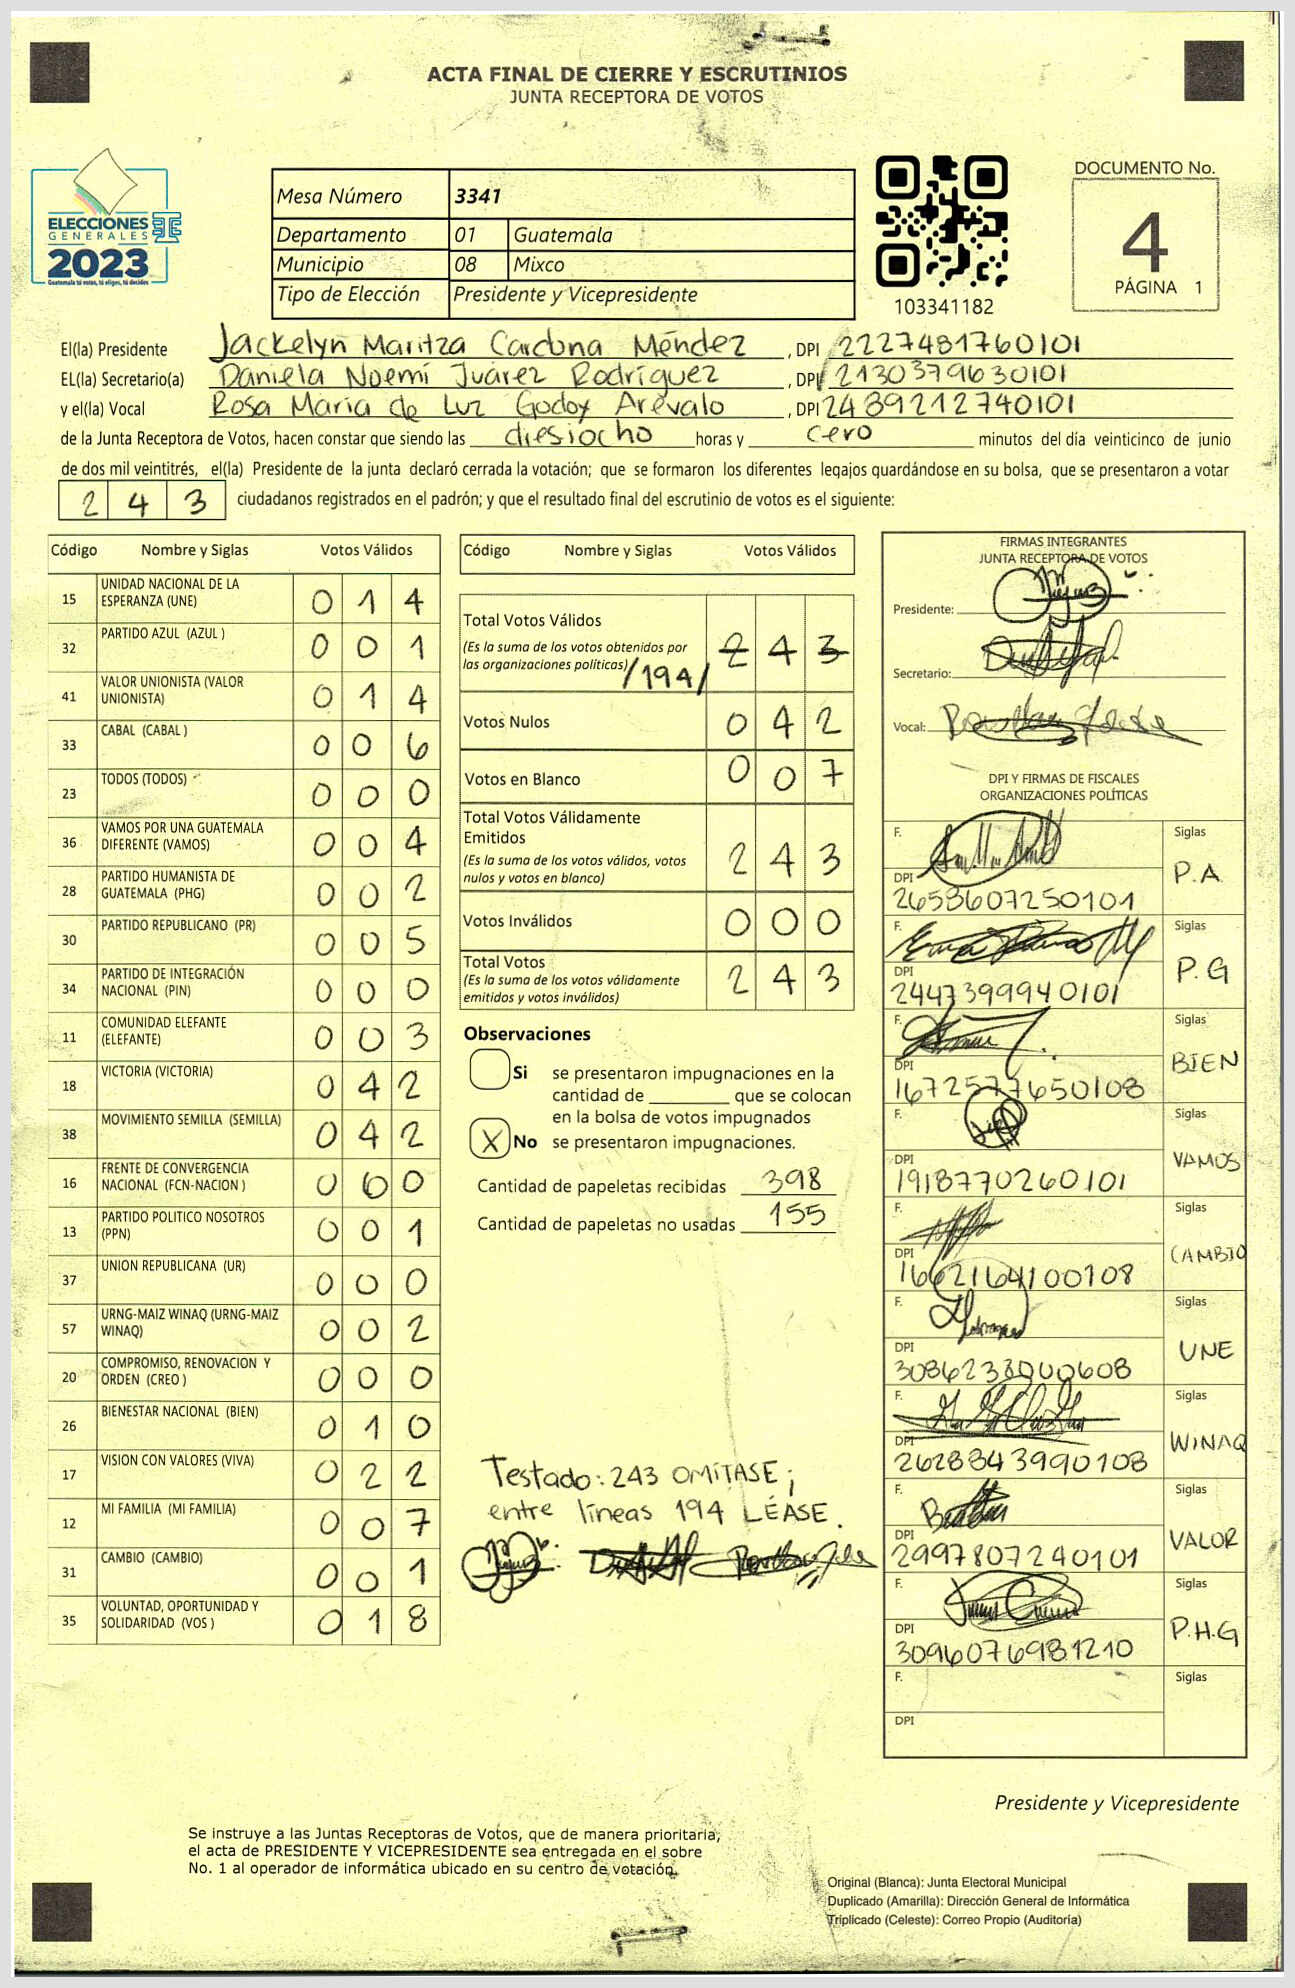 ACTA FINAL DE CIERRE Y ESCRUTINIOS
JUNTA RECEPTORA DE VOTOS
ELECCIONES
GENERALES
2023
Guatemala tú votas, tú eliges, tú decides
Mesa Número 3341
Departamento 01 Guatemala
Municipio 08 Mixco
Tipo de Elección Presidente y Vicepresidente
103341182
DOCUMENTO No.
4
PÁGINA 1
El(la) Presidente Jackelyn Maritza Cardona Méndez , DPI 2227481760101
EL(la) Secretario(a) Daniela Noemí Juárez Rodríguez , DPI 2130379630101
y el(la) Vocal Rosa María de Luz Godoy Arévalo , DPI 2439212740101
de la Junta Receptora de Votos, hacen constar que siendo las diesiocho horas y cero minutos del día veinticinco de junio
de dos mil veintitrés, el(la) Presidente de la junta declaró cerrada la votación; que se formaron los diferentes legajos guardándose en su bolsa, que se presentaron a votar
2 4 3 ciudadanos registrados en el padrón; y que el resultado final del escrutinio de votos es el siguiente:
Código Nombre y Siglas Votos Válidos
15 UNIDAD NACIONAL DE LA ESPERANZA (UNE) 0 1 4
32 PARTIDO AZUL (AZUL ) 0 0 1
41 VALOR UNIONISTA (VALOR UNIONISTA) 0 1 4
33 CABAL (CABAL ) 0 0 6
23 TODOS (TODOS) 0 0 0
36 VAMOS POR UNA GUATEMALA DIFERENTE (VAMOS) 0 0 4
28 PARTIDO HUMANISTA DE GUATEMALA (PHG) 0 0 2
30 PARTIDO REPUBLICANO (PR) 0 0 5
34 PARTIDO DE INTEGRACIÓN NACIONAL (PIN) 0 0 0
11 COMUNIDAD ELEFANTE (ELEFANTE) 0 0 3
18 VICTORIA (VICTORIA) 0 4 2
38 MOVIMIENTO SEMILLA (SEMILLA) 0 4 2
16 FRENTE DE CONVERGENCIA NACIONAL (FCN-NACION ) 0 0 0
13 PARTIDO POLITICO NOSOTROS (PPN) 0 0 1
37 UNION REPUBLICANA (UR) 0 0 0
57 URNG-MAIZ WINAQ (URNG-MAIZ WINAQ) 0 0 2
20 COMPROMISO, RENOVACION Y ORDEN (CREO ) 0 0 0
26 BIENESTAR NACIONAL (BIEN) 0 1 0
17 VISION CON VALORES (VIVA) 0 2 2
12 MI FAMILIA (MI FAMILIA) 0 0 7
31 CAMBIO (CAMBIO) 0 0 1
35 VOLUNTAD, OPORTUNIDAD Y SOLIDARIDAD (VOS ) 0 1 8
Código Nombre y Siglas Votos Válidos
Total Votos Válidos
(Es la suma de los votos obtenidos por
las organizaciones políticas) /194/ 2 4 3
Votos Nulos 0 4 2
Votos en Blanco 0 0 7
Total Votos Válidamente
Emitidos
(Es la suma de los votos válidos, votos
nulos y votos en blanco) 2 4 3
Votos Inválidos 0 0 0
Total Votos
(Es la suma de los votos válidamente
emitidos y votos inválidos) 2 4 3
Observaciones
Si se presentaron impugnaciones en la
cantidad de ________ que se colocan
en la bolsa de votos impugnados
X No se presentaron impugnaciones.
Cantidad de papeletas recibidas 398
Cantidad de papeletas no usadas 155
Testado: 243 OMÍTASE;
entre líneas 194 LÉASE.
FIRMAS INTEGRANTES
JUNTA RECEPTORA DE VOTOS
Presidente:
Secretario:
Vocal:
DPI Y FIRMAS DE FISCALES
ORGANIZACIONES POLÍTICAS
F. Siglas
DPI P.A
2653607250101
F. Siglas
DPI P.G
2447399940101
F. Siglas
DPI BIEN
1672577650108
F. Siglas
DPI VAMOS
1918770260101
F. Siglas
DPI CAMBIO
1662164100108
F. Siglas
DPI UNE
3086233000608
F. Siglas
DPI WINAQ
2628843990108
F. Siglas
DPI VALOR
2997807240101
F. Siglas
DPI P.H.G
3096076981210
F. Siglas
DPI
Presidente y Vicepresidente
Se instruye a las Juntas Receptoras de Votos, que de manera prioritaria,
el acta de PRESIDENTE Y VICEPRESIDENTE sea entregada en el sobre
No. 1 al operador de informática ubicado en su centro de votación.
Original (Blanca): Junta Electoral Municipal
Duplicado (Amarilla): Dirección General de Informática
Triplicado (Celeste): Correo Propio (Auditoría)